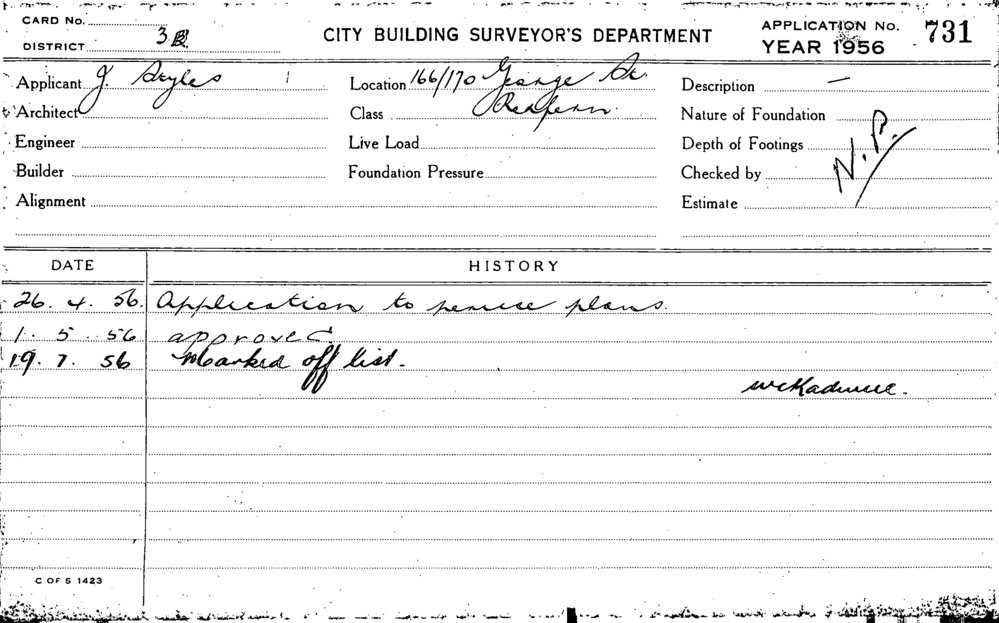 CARD No.
DISTRICT 3B
CITY BUILDING SURVEYOR'S DEPARTMENT
APPLICATION No. 731
YEAR 1956
Applicant J. Sryles
Location 166/170 George St.
Redfern.
Description —
Architect
Class
Nature of Foundation
Engineer
Live Load
Depth of Footings
N.P.
Builder
Foundation Pressure
Checked by
Alignment
Estimate
DATE HISTORY
26. 4. 56. Application to peruse plans.
1. 5. 56 approved
19. 7. 56 Marked off list.
C OF S 1423